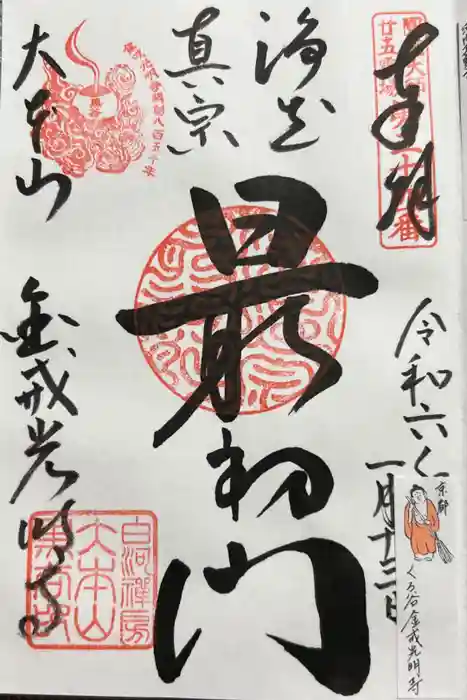 奉拝
令和六年
一月十三日
浄土
真宗
最初門
大本山
金戒光明寺
白河禅房
大本山
京都
くろ谷金戒光明寺